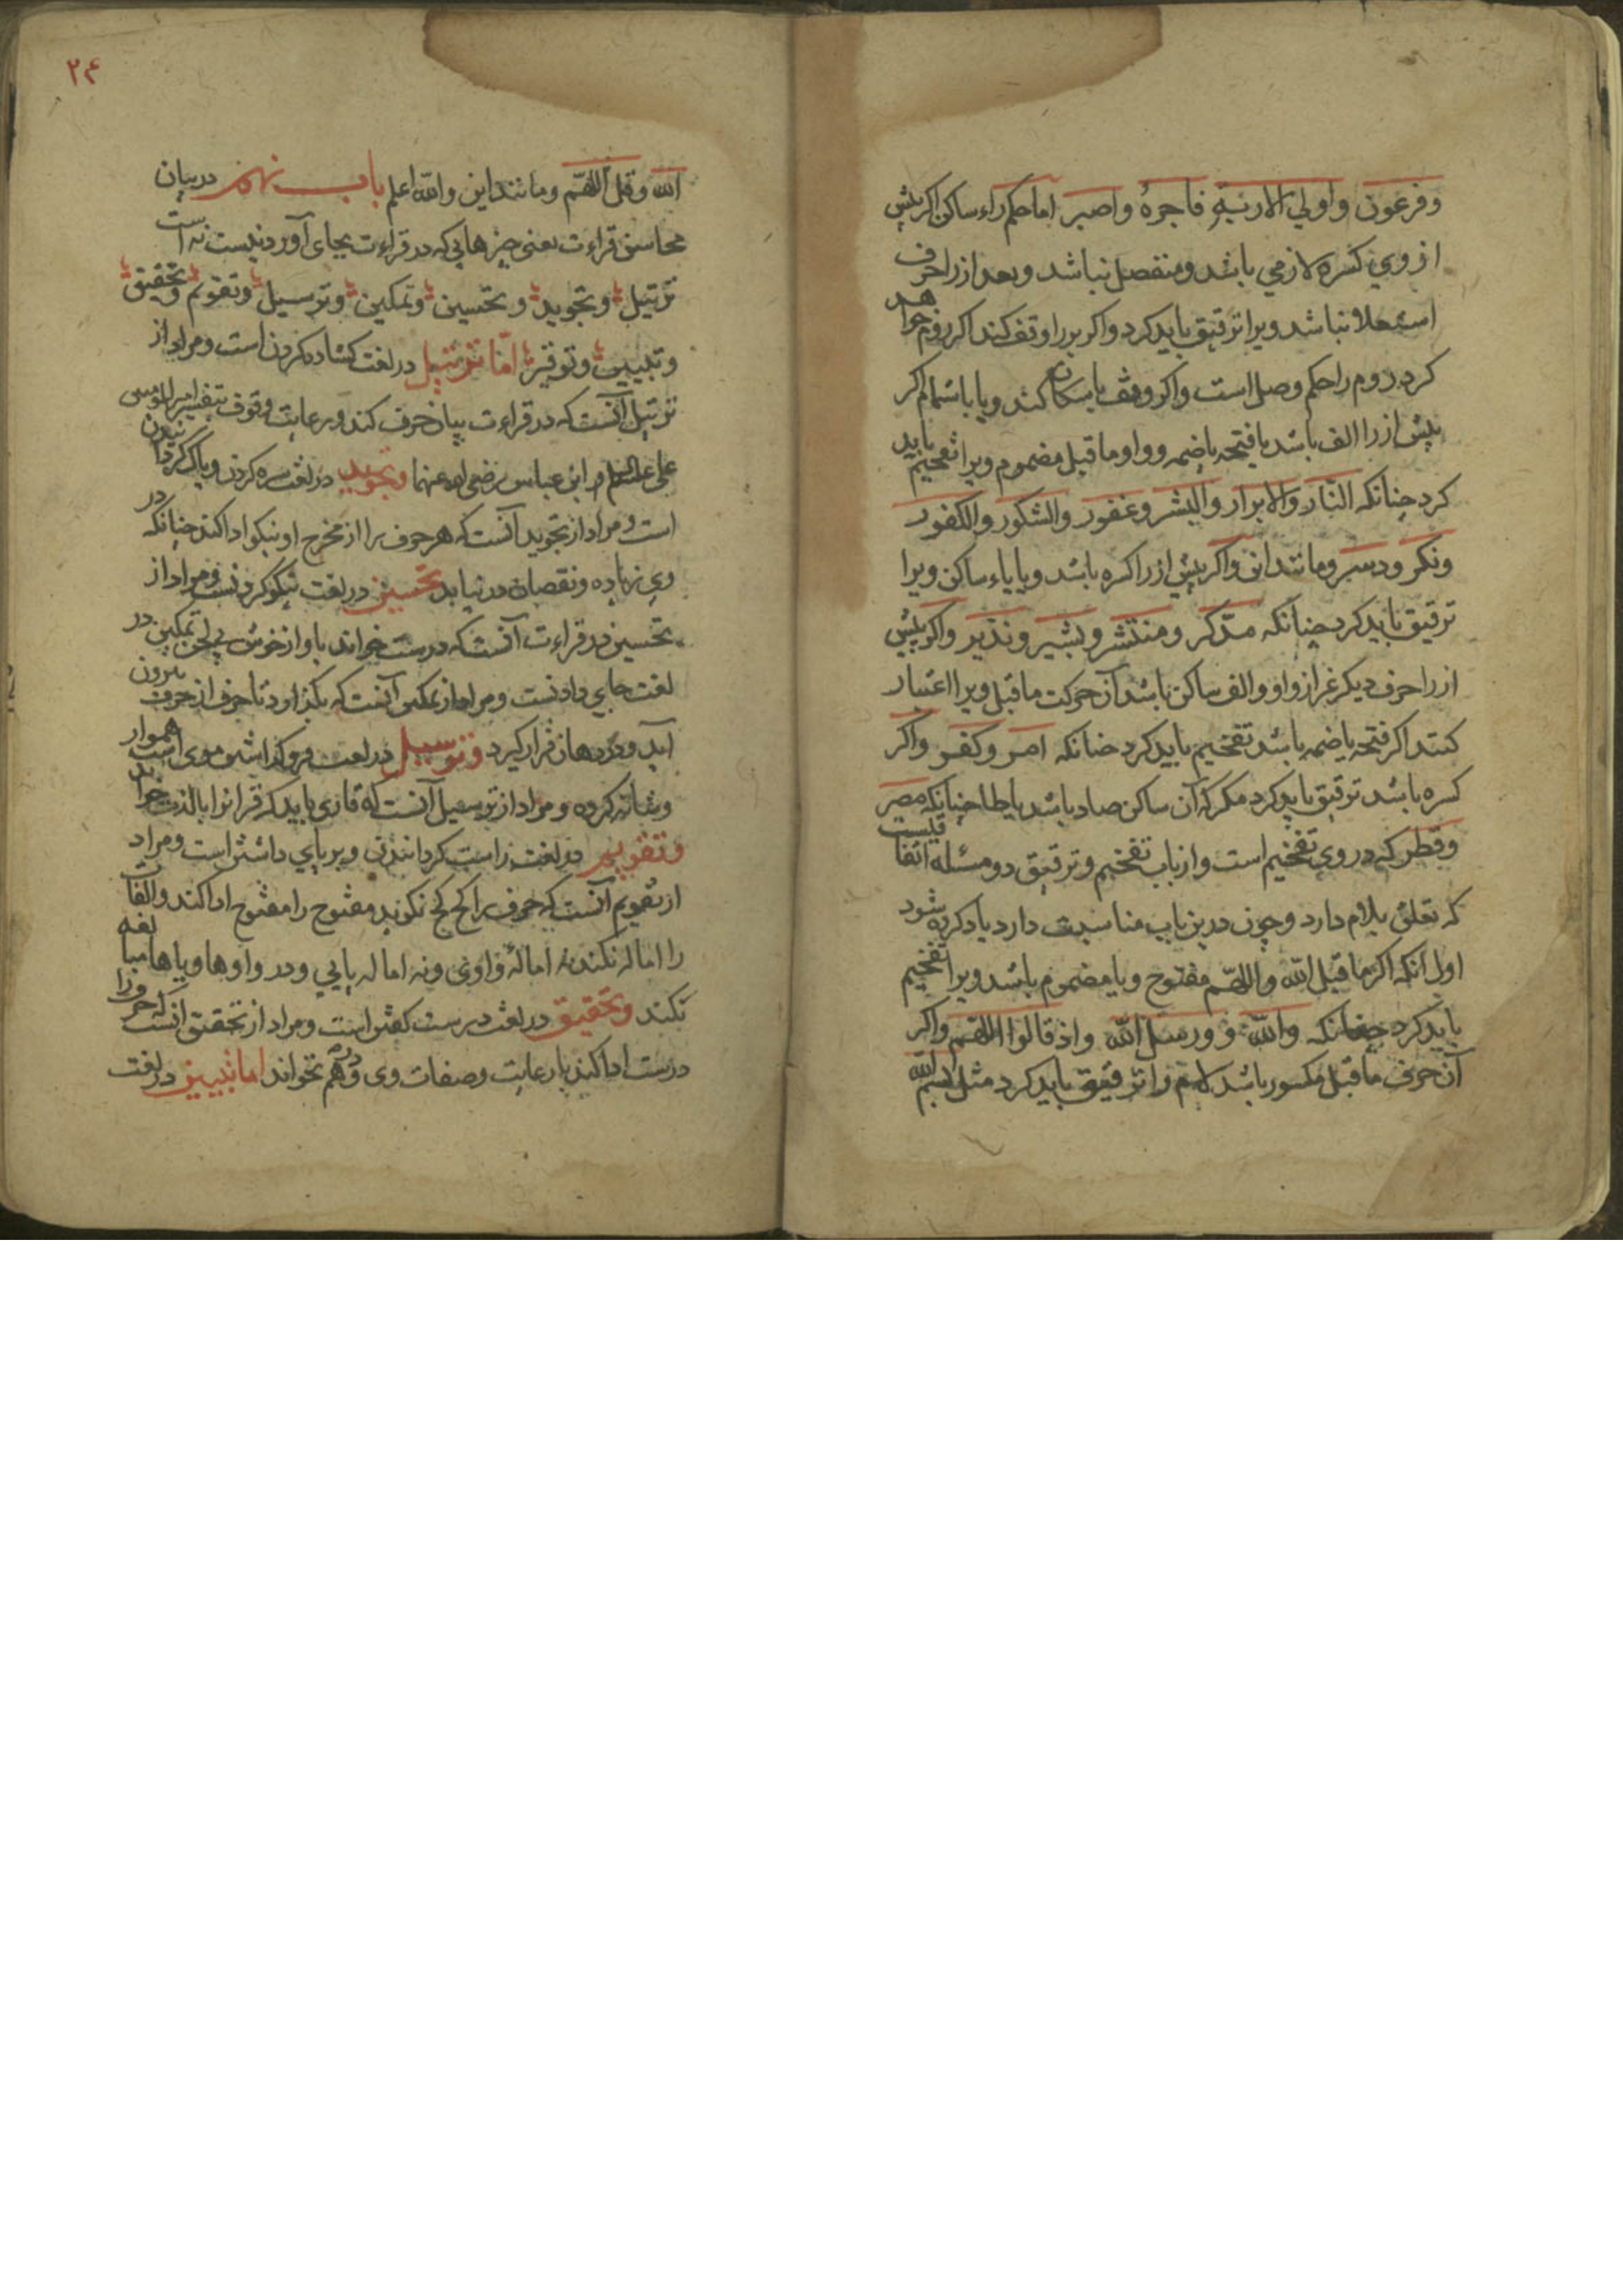 وفرعون واولي الاربة فاجره واصبر اما حكم راء ساكن اكر پيش
از وي كسره لازمي باشد ومنفصل نباشد وبعد از را حرف
استعلا نباشد ويرا ترقيق بايد كرد واكر بر را وقف كند اكر روم خواهد
كرد روم را حكم وصل است واكر وقف باسكان كند ويا باشمام اكر
پيش از را الف باشد يا فتحه يا ضمه وواو ماقبل مضموم ويرا تفخيم بايد
كرد چنانكه النار والابرار والبشر وغفور والشكور والكفور
ونكر ودسر ومانند اين واكر پيش از را كسره باشد ويا ياء ساكن ويرا
ترقيق بايد كرد چنانكه مدكر ومنتشر وبشير ونذير واكر پيش
از را حرف ديكر غير از واو والف ساكن باشد آن حركت ماقبل ويرا اعتبار
كنند اكر فتحه يا ضمه باشد تفخيم بايد كرد چنانكه امر وكفر واكر
كسره باشد ترقيق بايد كرد مكر كه آن ساكن صاد باشد يا طا چنانكه مصر
وقطر كه در وي تفخيم است واز باب تفخيم وترقيق دو مسئله اتفاقيست
كه تعلق بلام دارد وچون درين باب مناسبت دارد ياد كرده شود
اول آنكه اكر ماقبل الله واللهم مفتوح ويا مضموم باشد ويرا تفخيم
بايد كرد چنانكه والله ورسل الله واذ قالوا اللهم واكر
آن حرف ماقبل مكسور باشد لام را ترقيق بايد كرد مثل بسم الله
۲۴
الله وقل اللهم ومانند اين والله اعلم باب نهم در بيان
محاسن قراءت يعني چيزهايي كه در قراءت بجاي آوردنيست نه است
ترتيل وتجويد وتحسين وتمكين وترسيل وتقويم وتحقيق
وتبيين وتوقير اما ترتيل در لغت كشاده كردن است ومراد از
ترتيل آنست كه در قراءت بيان حرف كند ورعايت وقوف بتفسير امير المومنين
علي عليه السلم وابن عباس رضي الله عنهما وتجويد در لغت سره كردن وپاك كردانيدن
است ومراد از تجويد آنست كه هر حرف را از مخرج او نيكو ادا كند چنانكه در
وي زياده ونقصان در نيايد تحسين در لغت نيكو كردنست ومراد از
تحسين در قراءت آنست كه درست خواند باواز خوش بي لحن تمكين در
لغت جاي دادنست ومراد از تمكين آنست كه بكذارد تا حرف از حرف بيرون
آيد ودر دهان قرار كيرد وترسيل در لغت فروكذاشتن موي است هموار
وشانه كرده ومراد از ترسيل آنست كه قاري بايد كه قرانرا بالذت خواند
وتقويم در لغت راست كردانيدن وبر پاي داشتن است ومراد
از تقويم آنست كه حرف را كج كج نكويد مفتوح را مفتوح ادا كند والفات
را اماله نكند نه امالۀ واوي ونه اماله يايي ودر واوها وياها مبالغه
نكند وتحقيق در لغت درست كفتن است ومراد از تحقيق آنست كه حروف را
درست ادا كند با رعايت وصفات وي ودرهم نخواند اما تبيين در لغت